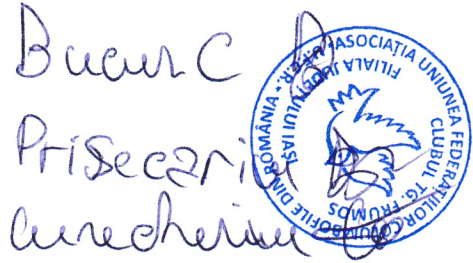 Bucur C
Prisecariu
Curecheriu
ASOCIAȚIA UNIUNEA FEDERAȚIILOR COLUMBOFILE DIN ROMÂNIA
FILIALA JUDEȚULUI IAȘI
CLUBUL TG. FRUMOS